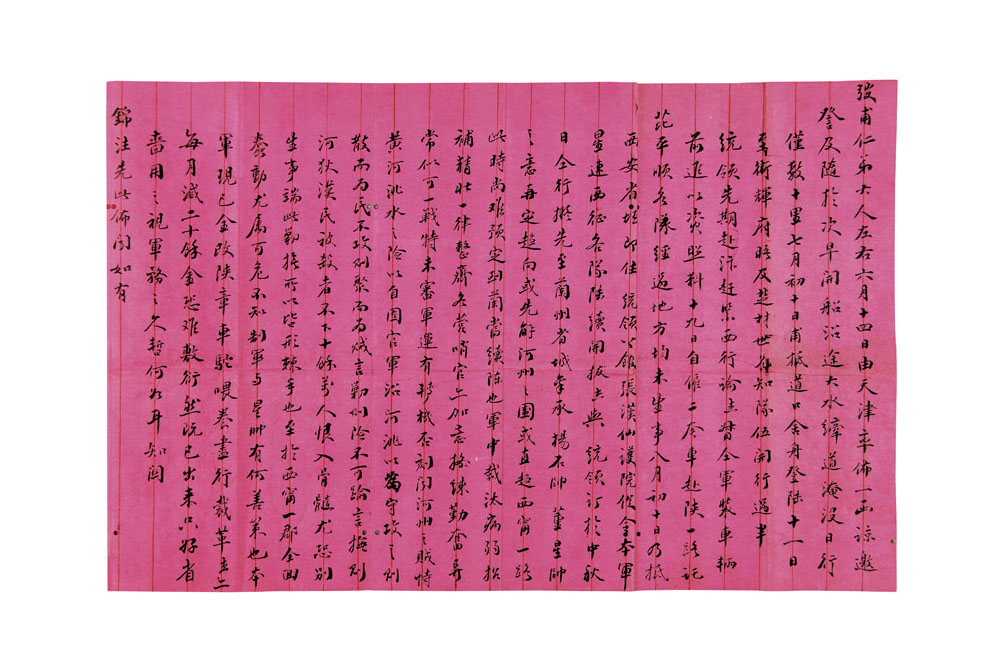 弢甫仁弟大人左右六月十四日由天津率佈一函諒邀
詧及隨於次早開船沿途大水縴道淹沒日行
僅數十里七月初十日甫抵道口舍舟登陸十一日
至衛輝府晤及楚材世叔知隊伍開行過半
統領先期赴汴趕緊西行諭吉督令軍裝車輛
前進以資照料十九日自僱二套車赴陝一路託
芘平順各隊經過地方均未生事八月初十日乃抵
西安省垣即住 統領公館張漢仙護院催令本軍
星速西征各隊陸續開拔吉與 統領訂於中秋
日全行擬先至蘭州省城拿承 楊石帥 董星帥
之意再定趨向或先解河州之圍或直趨西甯一路
此時尚難預定到蘭當續陳也軍中裁汰病弱招
補精壯一律整齊各營哨官亦加意操練勤奮異
常似可一戰特未審軍運有轉機否刻聞河州之賊恃
黃河洮水之險以自固官軍沿河洮以為守攻之則
散而為民不攻則聚而為賊言勦則陰不可踰言撫則
河狄漢民被殺者不下十餘萬人恨入骨髓尤恐別
生事端此勦撫所以皆形棘手也至於西甯一郡全回
蠢動尤屬可危不知制軍与星帥有何善策也本
軍現已全改陝章車駝喂養盡行裁革吉亦
每月減二十餘金恐難敷衍然既已出來只好省
嗇用之視軍務之久暫何如耳知関
錦注先此佈聞如有